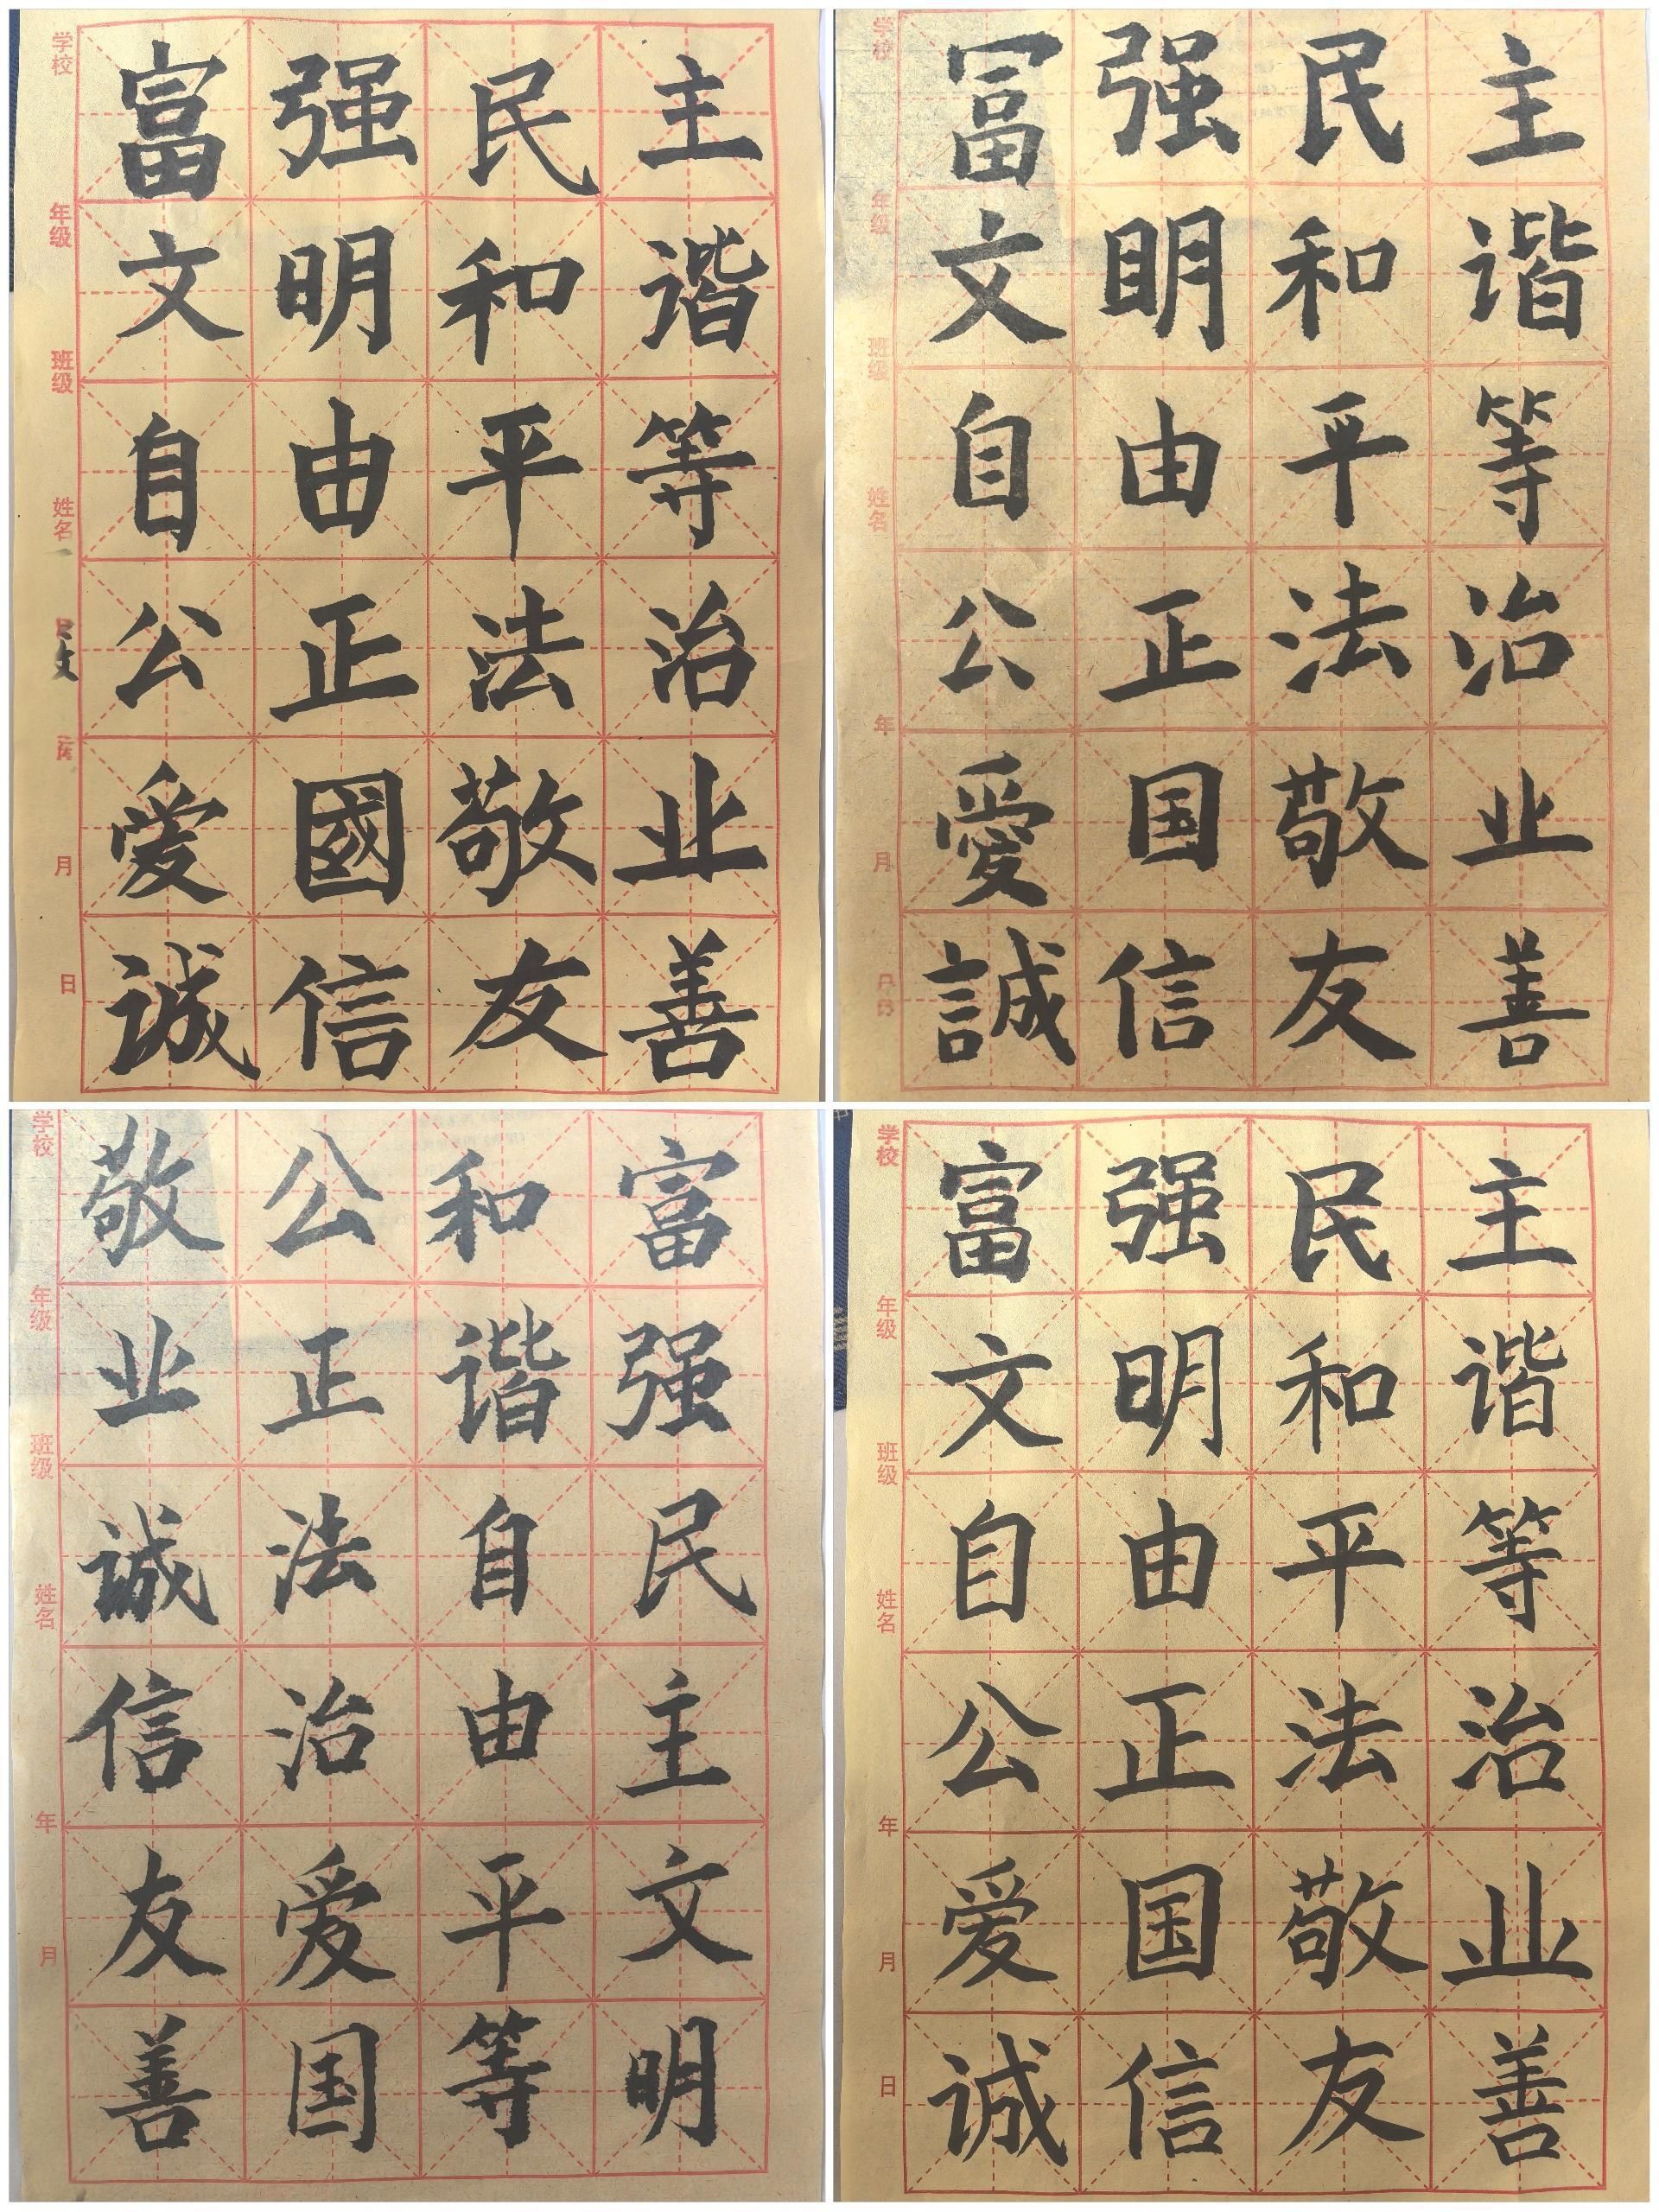 学校
年级
班级
姓名
月
日
富强民主
文明和谐
自由平等
公正法治
爱國敬业
诚信友善
学校
年级
班级
姓名
年
月
冨强民主
文明和谐
自由平等
公正法治
愛国敬业
誠信友善
学校
年级
班级
姓名
年
月
富强民主文明
和谐自由平等
公正法治爱国
敬业诚信友善
学校
年级
班级
姓名
年
月
日
富强民主
文明和谐
自由平等
公正法治
爱国敬业
诚信友善